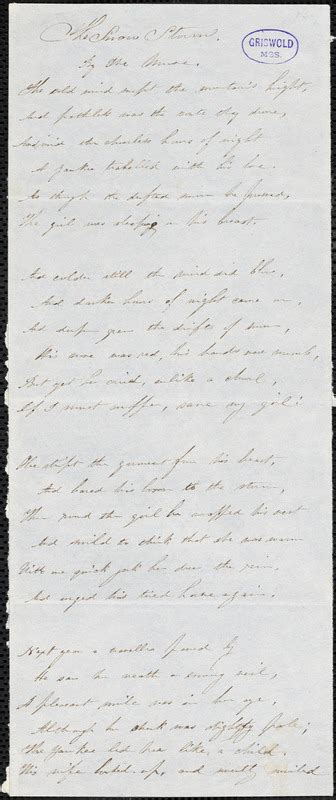 The Snow Storm.
By the Muse.
GRISWOLD
MSS.
The cold wind swept the mountain's height,
And pathless was the waste they dwere,
And mid the cheerless hours of night
A yankee travelled with his love.
As through the drifted snow he pressed,
The girl was sleeping on his breast.
And colder still the wind did blow,
And darker hours of night came on,
And deeper grew the drifts of snow,
His nose was red, his hands were numb,
But yet he cried, unlike a churl,
If I must suffer, save my girl!
He stript the garment from his breast,
And bared his bosom to the storm,
Then round the girl he wrapped his vest
And smiled to think that she was warm
With one quick jerk he drew the rein,
And urged his tired horse again.
Next year a traveller passed by
He saw her 'neath a sunny veil,
A pleasant smile was in her eye,
Although her cheek was slightly pale;
The yankee led her like a child,
His wife looked up, and sweetly smiled